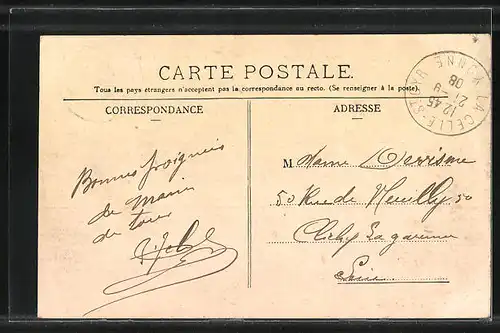 CARTE POSTALE.
Tous les pays étrangers n'acceptent pas la correspondance au recto. (Se renseigner à la poste).
CORRESPONDANCE
ADRESSE
LA CELLE-ST-CYR YONNE
12 45
21 -9
08
Bonnes poignées
de main
de tous
Madame Derrisme
50 Rue de Neuilly 50
Clichy La garenne
Seine